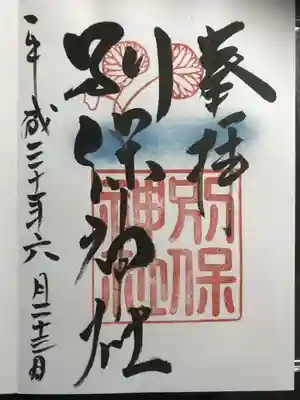 奉拝
別保神社
別保
神社
平成三十年六月二十三日